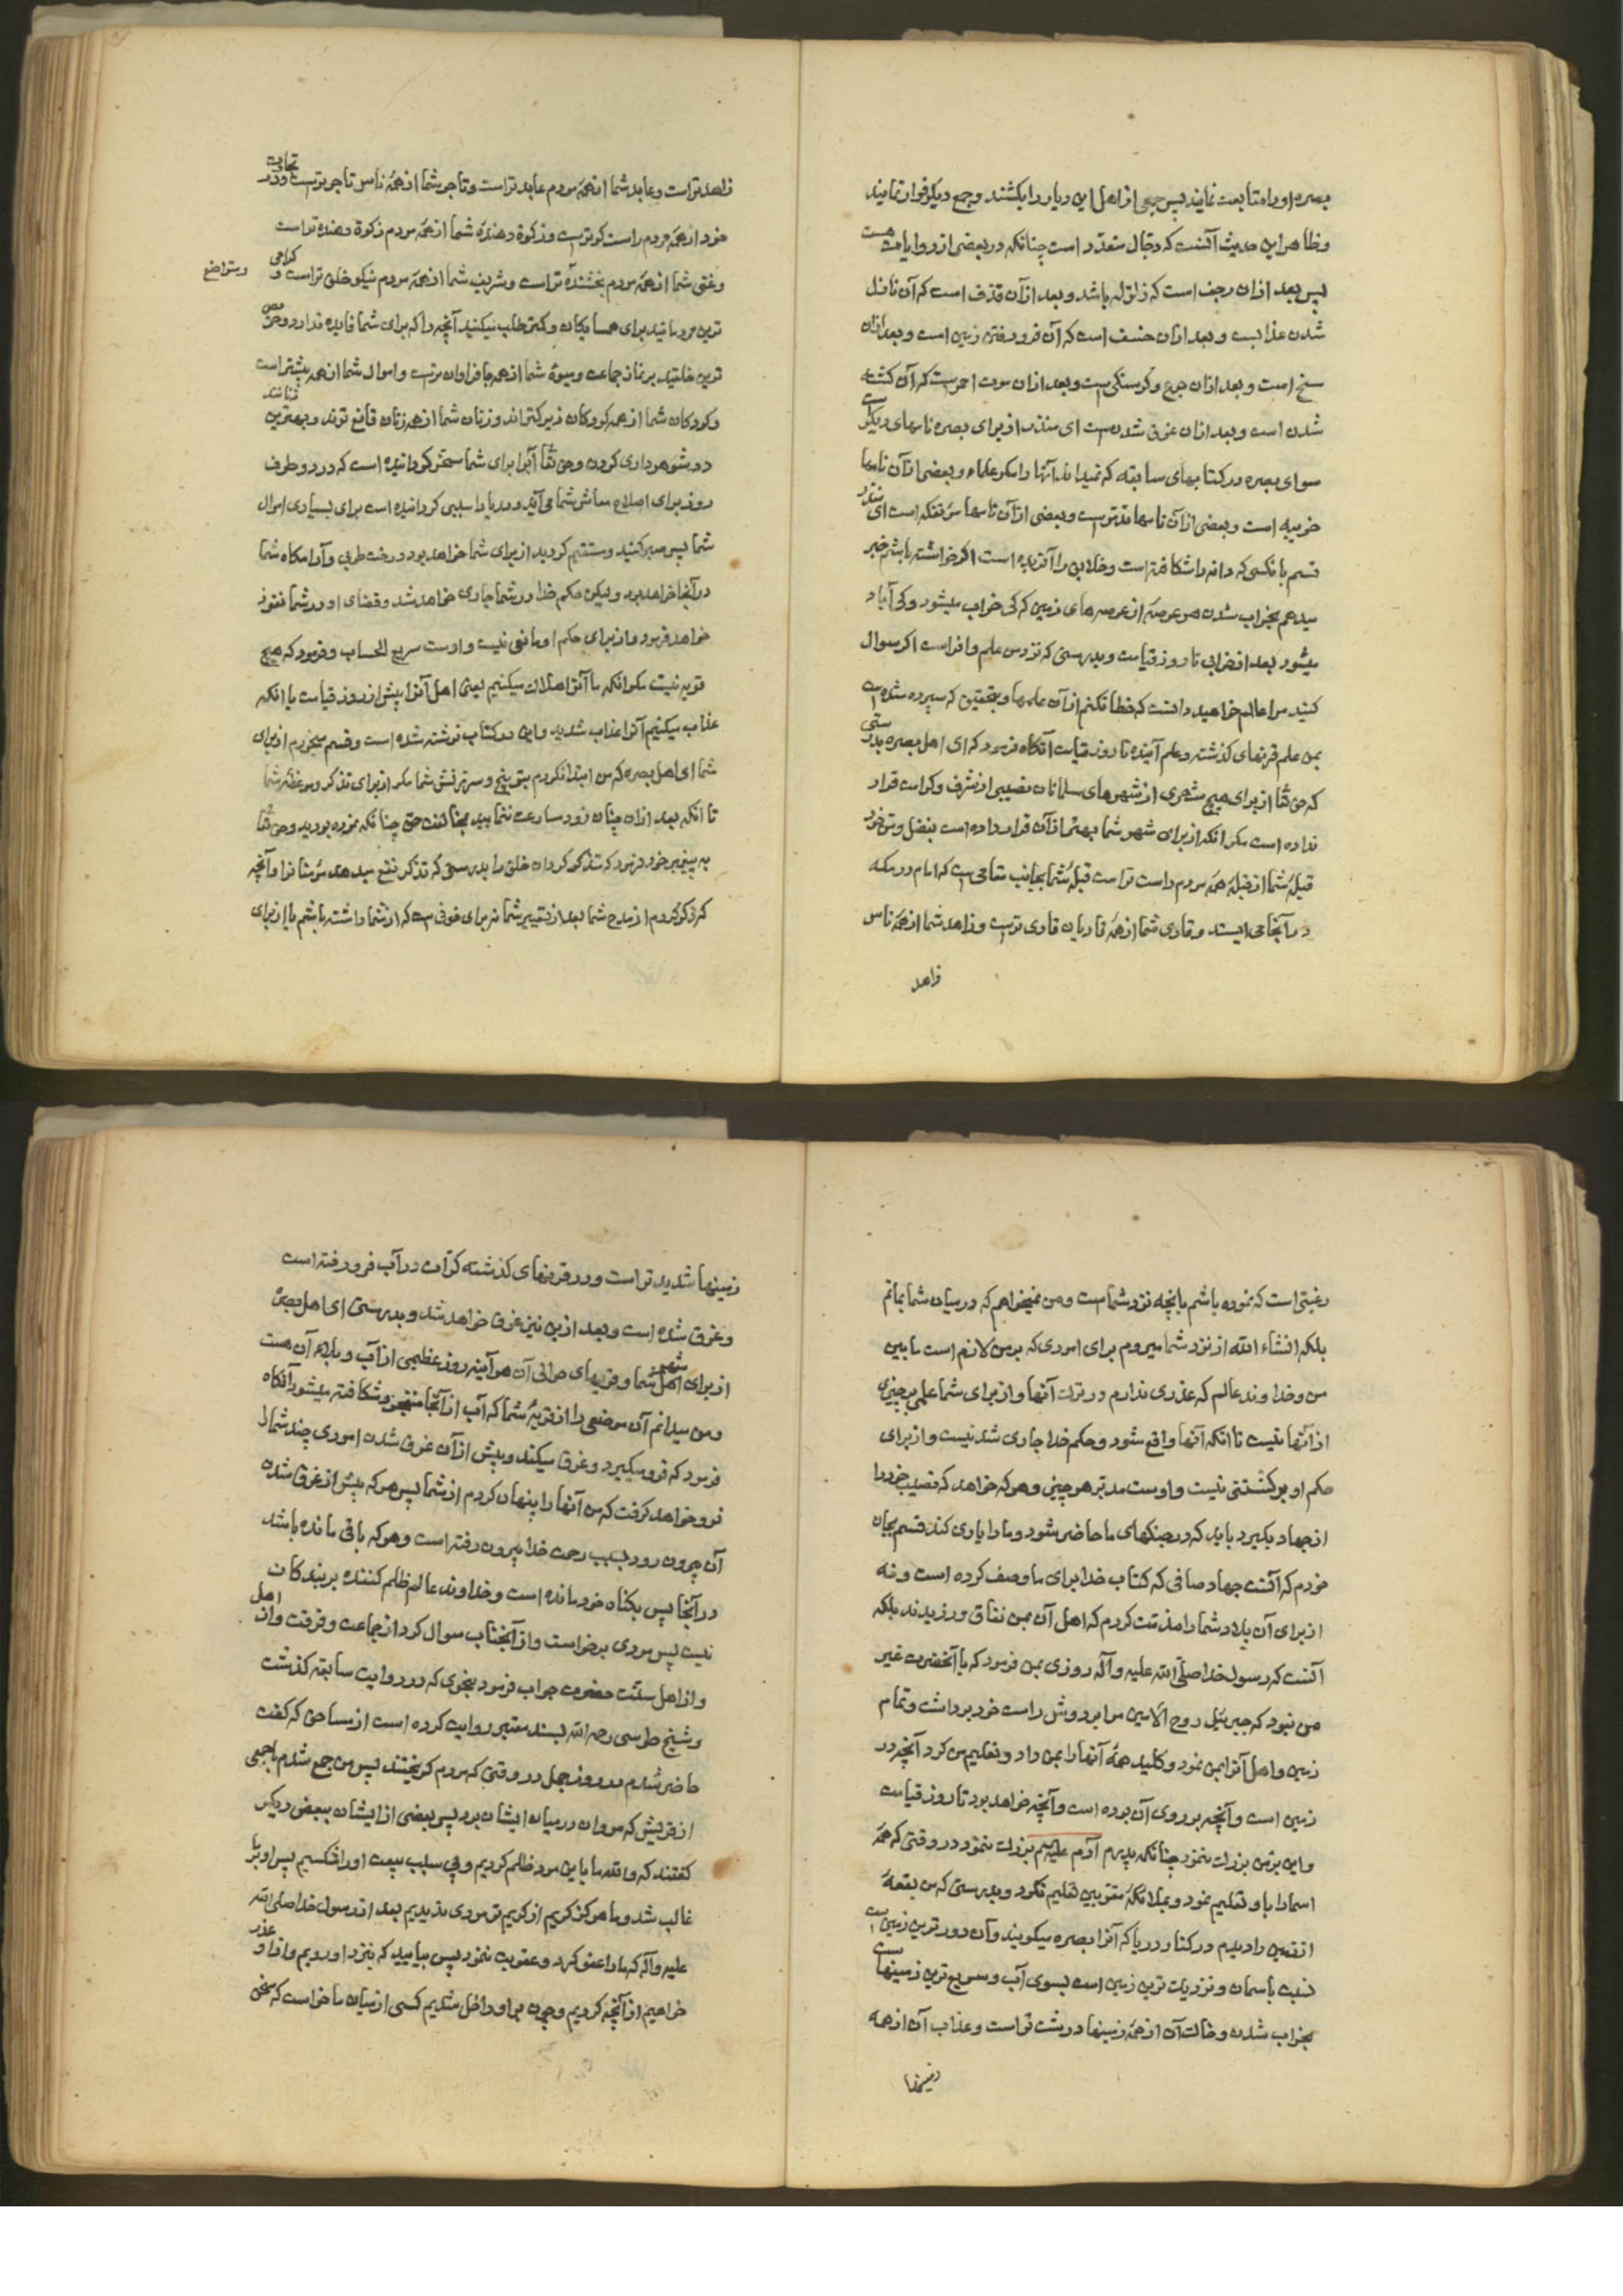 بصره او را متابعت نمایند پس جمعی از اهل این دیار را بکشند و جمع دیگر فرار نمایند
و ظاهر این حدیث آنست که دجال متعدد است چنانکه در بعضی از روایات هست
پس بعد از ان رجف است که زلزله باشد و بعد از آن قذف است که آن نازل
شدن عذابست و بعد ازان خسف است که آن فرو رفتن زمین است و بعد ازان
مسخ است و بعد ازان جوع و کرسنکی است و بعد ازان موت احمر است که آن کشته
شدن است و بعد ازان غرق شدنست ای منذر از برای بصره نامهای دیگر است
سوای بصره در کتابهای سابقه که نمیداند آنها را مکر علماء و بعضی از آن نامها
خریبه است و بعضی از آن نامها تدمر است و بعضی از آن نامها مؤتفکه است ای منذر
قسم بانکسی که دانه را شکافته است و خلایق را آفریده است اکر خواسته باشم خبر
میدهم بخراب شدن هر عرصه از عرصه های زمین که کی خراب میشود و کی آباد
میشود بعد از خرابی تا روز قیامت و بدرستی که نزد من علم وافر است اکر سوال
کنید مرا عالم خواهید دانست که خطا نکنم از آن علمها و بتحقیق که سپرده شده است
بمن علم قرنهای کذشته و علم آینده تا روز قیامت آنکاه فرمود که ای اهل بصره بدرستی
که حق تعا از برای هیچ شهری از شهرهای مسلمانان نصیبی از شرف و کرامت قرار
نداده است مکر انکه از برای شهر شما بهتر از آن قرار داده است بفضل و من خود
قبلهٔ شما از قبلهٔ همهٔ مردم راست تر است قبلهٔ شما بجانب مقامی است که امام در مکه
در آنجا می ایستد و قاری شما از همهٔ قاریان قاری تر است و زاهد شما از همهٔ ناس
زاهد
زاهدتر است و عابد شما از همهٔ مردم عابد تر است و تاجر شما از همهٔ ناس تاجر تر است و در تجارت
خود از همهٔ مردم راست کوتر است و زکوة دهندهٔ شما از همهٔ مردم زکوة دهنده تر است
و غنی شما از همهٔ مردم بخشنده تر است و شریف شما از همهٔ مردم نیکو خلق تر است و کرامی و متواضع
ترین مردمانید برای همسایکان و کمتر طلب میکنید آنچه را که برای شما فایده ندارد و حریص
ترین خلقید بر نماز جماعت و میوهٔ شما از همه جا فراوان تر است و اموال شما از همه بیشتر است
و کودکان شما از همه کودکان زیرکتراند و زنان شما از همه زنان قانع ترند و بهترین زنانند
در شوهرداری کردن و حق تعا آبرا برای شما مسخر کردانیده است که در دو طرف
روز برای اصلاح معاش شما می آید و دریا را سببی کردانیده است برای بسیاری اموال
شما پس صبر کنید و مستقیم کردید از برای شما خواهد بود درخت طوبی و آرامکاه شما
در آنجا خواهد بود و لیکن حکم خدا در شما جاری خواهد شد و قضای او در شما نفوذ
خواهد فرمود و از برای حکم او مانعی نیست و اوست سریع الحساب و فرمود که هیچ
قریه نیست مکر انکه ما آنرا هلاک میکنیم یعنی اهل آنرا پیش از روز قیامت یا انکه
عذاب میکنیم آنرا عذاب شدید و این در کتاب نوشته شده است و قسم میخورم از برای
شما ای اهل بصره که من ابتدا نکردم بتوبیخ و سرزنش شما مکر از برای تذکر و موعظهٔ شما
تا انکه بعد ازان چنان زود مسارعت ننمایید بمخالفت حق چنانکه نموده بودید و حق تعا
به پیغمبر خود فرمود که متذکر کردان خلق را بدرستی که تذکر نفع میدهد مؤمنان را و آنچه
که ذکر کردم از مدح شما بعد از تغییر شما نه برای خوفی است که از شما داشته باشم یا از برای
رغبتی است که نموده باشم بانچه نزد شماست و من نمیخواهم که در میان شما بمانم
بلکه انشاء الله از نزد شما میروم برای اموری که بر من لازم است ما بین
من و خداوند عالم که عذری ندارم در ترک آنها و از برای شما علمی بر چیزی
از آنها نیست تا انکه آنها واقع شود و حکم خدا جاری شد نیست و از برای
حکم او برکشتنی نیست و اوست مدبر هر چیز و هر که خواهد که نصیب خود را
از جهاد بکیرد باید که در جنکهای ما حاضر شود و ما را یاری کند قسم بجان
خودم که آنست جهاد صافی که کتاب خدا برای ما وصف کرده است و نه
از برای آن بلاد شما را مذمت کردم که اهل آن بمن نفاق ورزیدند بلکه
آنست که رسول خدا صلی الله علیه و آله روزی بمن فرمود که با آنحضرت غیر
من نبود که جبرئیل روح الامین مرا بر دوش راست خود برداشت و تمام
زمین و اهل آنرا بمن نمود و کلید همهٔ آنها را بمن داد و تعلیم من کرد آنچه در
زمین است و آنچه بر روی آن بوده است و آنچه خواهد بود تا روز قیامت
و این بر من بزرک ننمود چنانکه بپدرم آدم علیه السلام بزرک ننمود در وقتی که همهٔ
اسما را باو تعلیم نمود و بملائکهٔ مقربین تعلیم نکرد و بدرستی که من بقعهٔ
از زمین را دیدم در کنار دریا که آنرا بصره میکویند و آن دور ترین زمین است
نسبت باسمان و نزدیک ترین زمین است بسوی آب و سریع ترین زمینهاست
بخراب شدن و خاک آن از همهٔ زمینها درشت تر است و عذاب آن از همه
زمینها
زمینها شدید تر است و در قرنهای کذشته کرات در آب فرو رفته است
و غرق شده است و بعد ازین نیز غرق خواهد شد و بدرستی ای اهل بصره
از برای اهل شهر شما و قریهای حوالی آن هر آینه روز عظیمی از آب و بلاء آن هست
و من میدانم آن موضعی را از قریهٔ شما که آب از آنجا منفجر و شکافته میشود آنکاه
فرمود که فرو میکیرد و غرق میکند و پیش از آن غرق شدن اموری چند شما را
فرو خواهد کرفت که من آنها را پنهان کردم از شما پس هر که پیش از غرق شدن
آن بیرون رود بسبب رحمت خدا بیرون رفته است و هر که باقی مانده باشد
در آنجا پس بکناه خود مانده است و خداوند عالم ظلم کننده بر بندکان
نیست پس مردی برخواست و از آنجناب سوال کرد از جماعت و فرقت و از اهل
و از اهل سنت حضرت جواب فرمود بنحوی که در روایت سابقه کذشت
و شیخ طوسی رحمه الله بسند معتبر روایت کرده است از مساحق که کفت
حاضر شدم در روز جمل در وقتی که مردم کریختند پس من جمع شدم با جمعی
از قریش که مروان در میان ایشان بود پس بعضی از ایشان ببعض دیکر
کفتند که والله ما باین مرد ظلم کردیم و بی سبب بیعت او را شکستیم پس او بر ما
غالب شد و ما هرکز کریم از کریم تر مردی ندیدیم بعد از رسول خدا صلی الله
علیه و آله که ما را عفو کرد و عقوبت ننمود پس بیایید که بنزد او رویم و از او عذر
خواهیم از آنچه کردیم و چون بر او داخل شدیم کسی از میان ما خواست که سخن